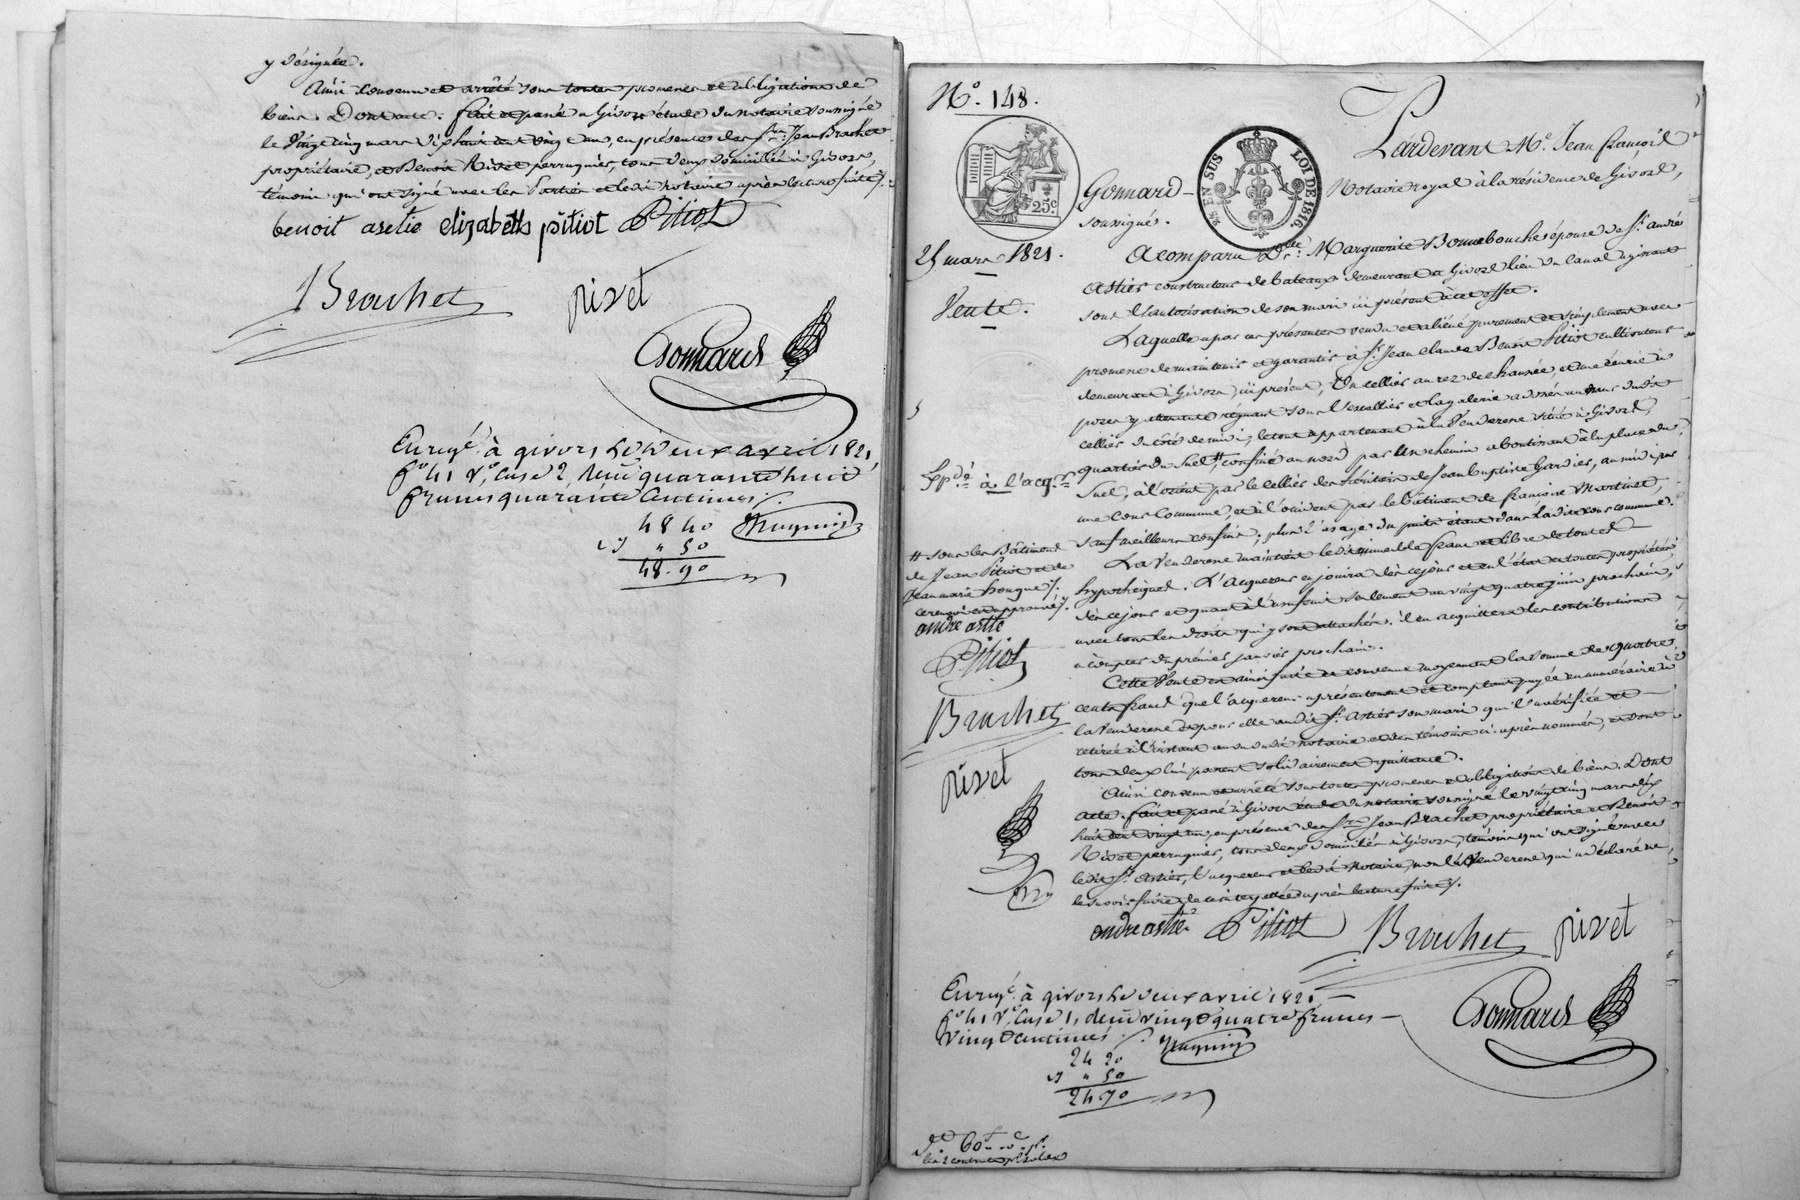 y désignée.
Ainsi convenu et arrêté sous toutes promesses et obligations de
biens. Dont acte. fait et passé à Givors étude du notaire soussigné
le vingt cinq mars dix huit cent vingt un, en présence des Srs. Jean Brachet
propriétaire, et Benoit Rivet perruquier, tous deux domiciliés à Givors,
témoins qui ont signé avec les Parties et ledit notaire après lecture faite /.
benoit astie elizabetts pitiot Pitiot
Brachet rivet
Gonnard
Enregé. à givors le deux avril 1821
fo. 41 vo. Case 2, reçu quarante huit
francs quarante Centimes /.
48 40
" 50
48. 90
No. 148.
25c
EN SUS LOI DE 1816
Pardevant Me. Jean françois
Gonnard Notaire royal à la résidence de Givors,
soussigné.
25 mars 1821.
A comparu Marguerite Bonnebouche épouse de Sr. andré
astier constructeur de bateaux demeurant à Givors lieu du Canal agissant
Vente.
sous l'autorisation de son mari ici présent à cet effet.
Laquelle a par ces présentes vendu et aliéné purement et simplement avec
promesse de maintenir et garantir à Sr. Jean Claude Benoit Pitiot cultivateur
demeurant à Givors, ici présent, Un cellier au rez de chaussée, et une écurie à
porcs y attenante régnant sous l'escallier et la galerie adossée audit
cellier du côté de midi, le tout appartenant à la Venderesse situé à Givors,
quartier du Suel, # confiné au nord par un chemin aboutissant à la place du
Expd. à l'acqr.
Suel, à l'orient par le cellier des héritiers de Jean baptiste Gardier, au midi par
une Cour Commune, et à l'occident par le bâtiment de françois Martinet,
sauf meilleurs confins; plus l'usage du puits étant dans ladite cour commune.
# sous les Bâtiments
de Jean Pitiot et de
Jean marie hongue /.
ce renvoi est approuvé /.
andre astie
Pitiot
Brachet
rivet
La Venderesse maintient le dit immeuble franc et libre de toutes
hypothèques. L'acquereur en jouira dès ce jour et en l'état en toute propriété
dès ce jour et quant à l'usufruit seulement au vingt quatre juin prochain,
avec tous les droits qui y sont attachés. il en acquittera les contributions
à compter du premier janvier prochain.
Cette Vente est ainsi faite et convenue moyennant la somme de quatre
cents francs que l'acquereur a présentement et comptant payée en numéraire à
la Venderesse et pour elle audit Sr. astier son mari qui l'a vérifiée et
retirée à l'instant au vu dudit notaire et des témoins ci-après nommés, et dont
tous deux lui passent solidairement quittance.
Ainsi convenu et arrêté sous toutes promesses et obligations de biens. Dont
acte. fait et passé à Givors étude du notaire soussigné le vingt cinq mars dix
huit cent vingt un, en présence des Srs. Jean Brachet propriétaire et Benoit
Rivet perruquier, tous deux domiciliés à Givors, témoins qui ont signé avec
ledit Sr. Astier, l'acquereur et ledit Notaire, non la Venderesse qui a déclaré ne
le savoir faire de ce interpellée après lecture faite /.
andre astier Pitiot Brachet rivet
Gonnard
Enregé. à givors le deux avril 1821
fo. 41 vo. Case 1, reçu vingt quatre francs
vingt centimes /.
24 20
" 50
24. 70